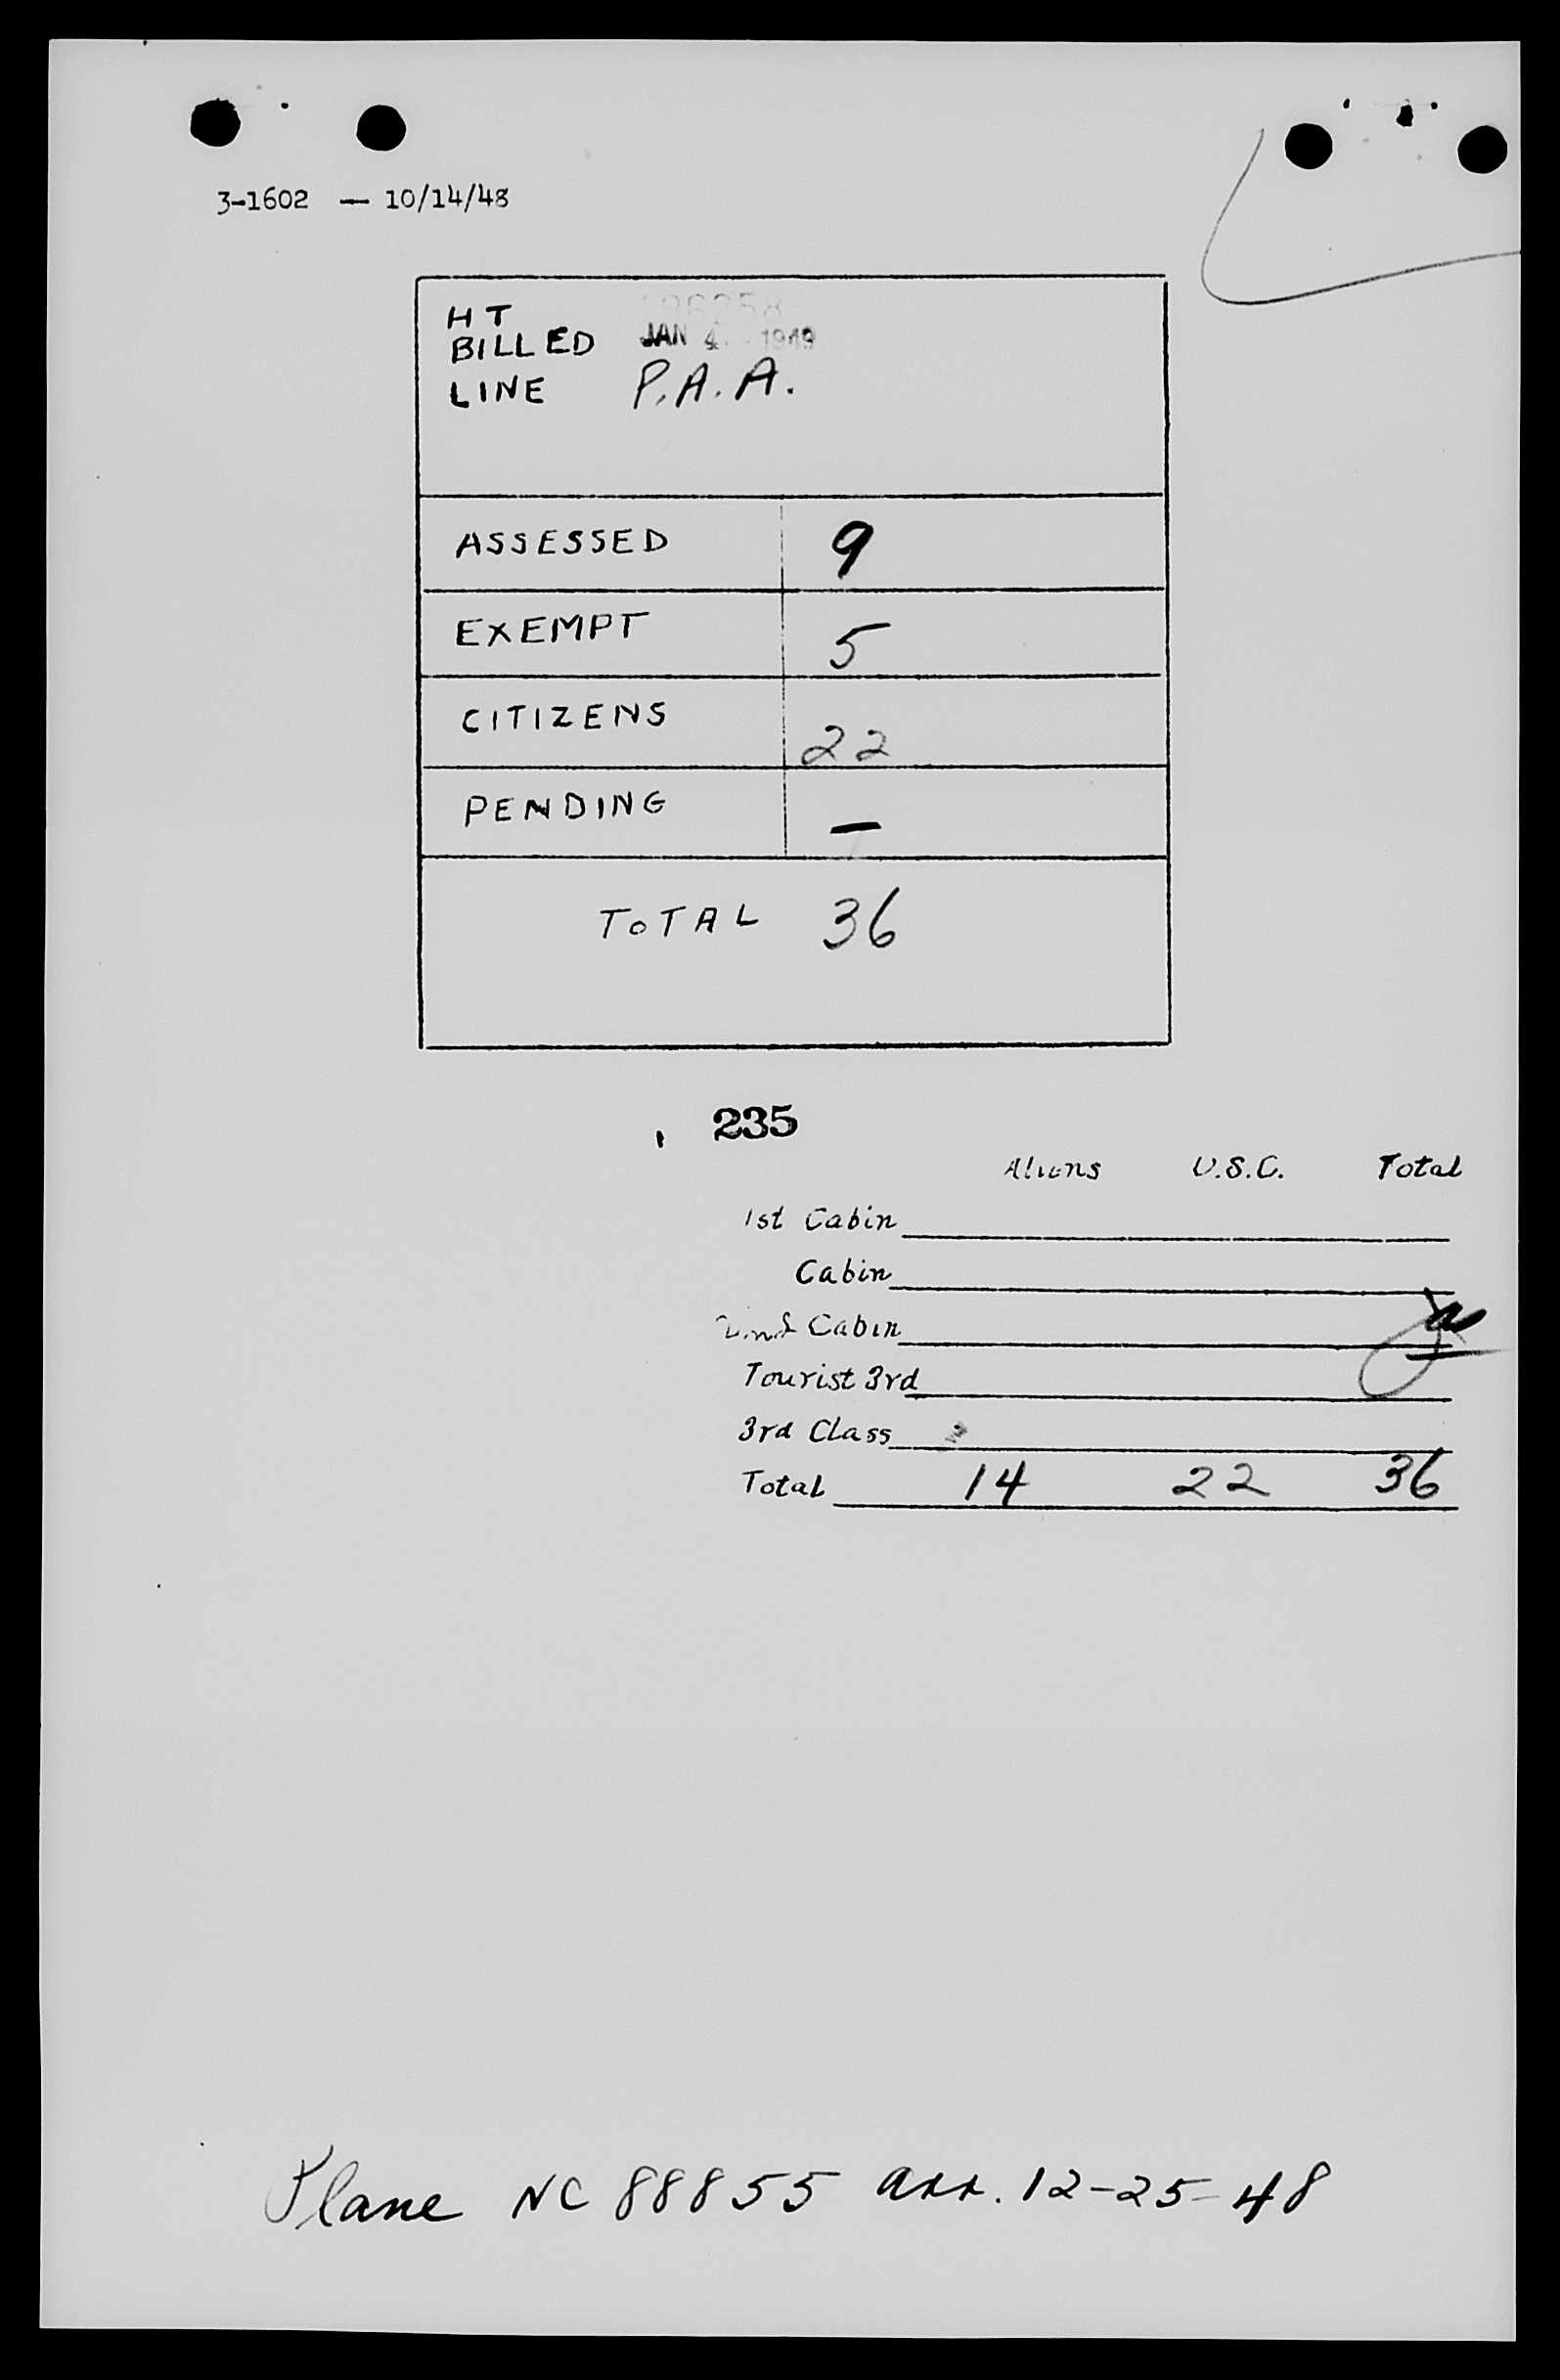 3-1602 — 10/14/48
HT
BILLED JAN 4 1949
LINE P.A.A.
ASSESSED 9
EXEMPT 5
CITIZENS 22
PENDING —
TOTAL 36
235
Aliens U.S.C. Total
1st Cabin
Cabin
Cabin
Tourist 3rd
3rd Class
Total 14 22 36
Plane NC 88855 arr. 12-25-48